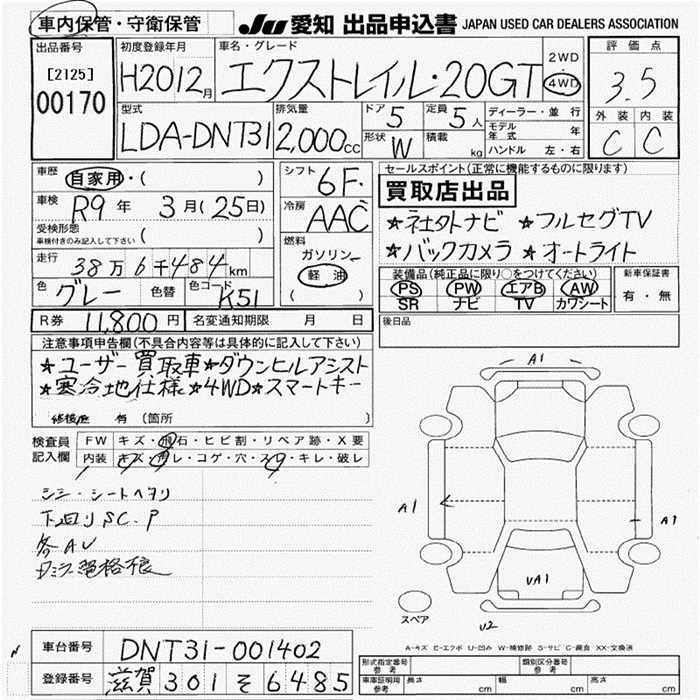 車内保管・守衛保管
JU 愛知 出品申込書 JAPAN USED CAR DEALERS ASSOCIATION
出品番号
[2125]
00170
初度登録年月
H20 12月
車名・グレード
エクストレイル・20GT
2WD
・
4WD
評価点
3.5
外装 内装
C C
型式
LDA-DNT31
排気量
2,000cc
ドア 5
定員 5人
形状 W
積載 kg
ディーラー・並行
モデル年式 年
ハンドル 左・右
車歴
自家用・( )
車検
R9年 3月(25日)
受検形態
車検付きのみ記入して下さい ( )
走行
38万6千484km
色 グレー 色替 色コード K51
シフト
6F.
冷房
AAC
燃料
ガソリン
軽油
( )
セールスポイント(正常に機能するものに限ります)
買取店出品
★社外ナビ ★フルセグTV
★バックカメラ ★オートライト
装備品(純正品に限り○をつけてください)
PS PW エアB AW
SR ナビ TV カワシート
新車保証書
有・無
R券 11,800円 名変通知期限 月 日
後日品
注意事項申告欄(不具合内容等は具体的に記入して下さい)
★ユーザー買取車★ダウンヒルアシスト
★寒冷地仕様★4WD★スマートキー
修復歴 有 (箇所 )
検査員
記入欄
FW キズ・飛石・ヒビ割・リペア跡・X要
内装 キズ・汚レ・コゲ・穴・スレ・キレ・破レ
下回りSC.P
各AU
A1
A1
A1
UA1
U2
スペア
A-キズ E-エクボ U-凹み W-補修跡 S-サビ C-腐食 XX-交換済
N
車台番号 DNT31-001402
登録番号 滋賀 301 そ 6485
形式指定番号 参考
類別区分番号 参考
車庫証明記入欄 参考 長さ cm 幅 cm 高さ cm